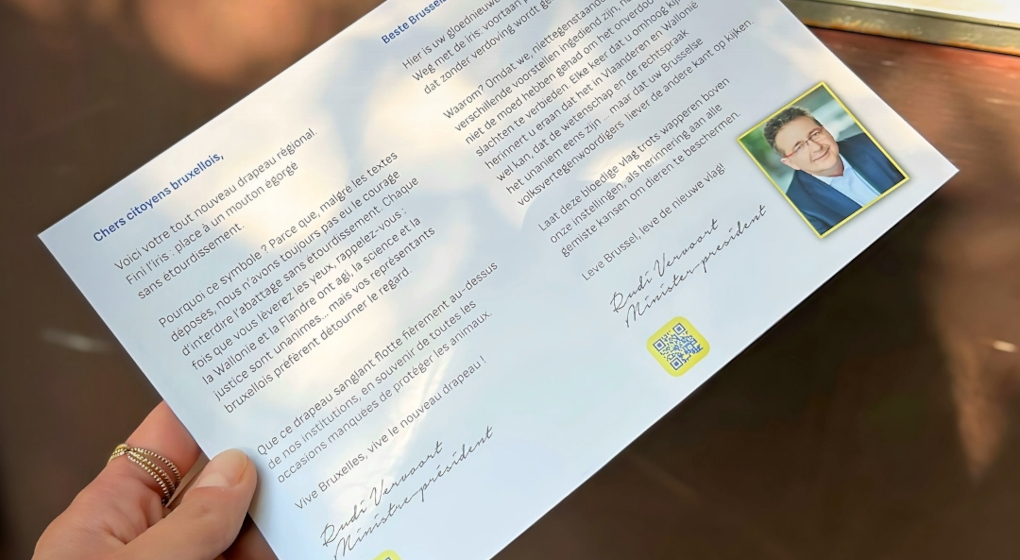 Chers citoyens bruxellois,
Voici votre tout nouveau drapeau régional.
Fini l'iris : place à un mouton égorgé
sans étourdissement.
Pourquoi ce symbole ? Parce que, malgré les textes
déposés, nous n'avons toujours pas eu le courage
d'interdire l'abattage sans étourdissement. Chaque
fois que vous lèverez les yeux, rappelez-vous :
la Wallonie et la Flandre ont agi, la science et la
justice sont unanimes... mais vos représentants
bruxellois préfèrent détourner le regard.
Que ce drapeau sanglant flotte fièrement au-dessus
de nos institutions, en souvenir de toutes les
occasions manquées de protéger les animaux.
Vive Bruxelles, vive le nouveau drapeau !
Rudi Vervoort
Ministre-président
Beste Brussel
Hier is uw gloednieuwe
Weg met de iris: voortaan
dat zonder verdoving wordt
Waarom? Omdat we, niettegenstaande
verschillende voorstellen ingediend zijn,
niet de moed hebben gehad om het onverdoofd
slachten te verbieden. Elke keer dat u omhoog
herinnert u eraan dat het in Vlaanderen en Wallonië
wel kan, dat de wetenschap en de rechtspraak
het unaniem eens zijn ... maar dat uw Brusselse
volksvertegenwoordigers liever de andere kant op kijken.
Laat deze bloedige vlag trots wapperen boven
onze instellingen, als herinnering aan alle
gemiste kansen om dieren te beschermen.
Leve Brussel, leve de nieuwe vlag!
Rudi Vervoort
Minister-president